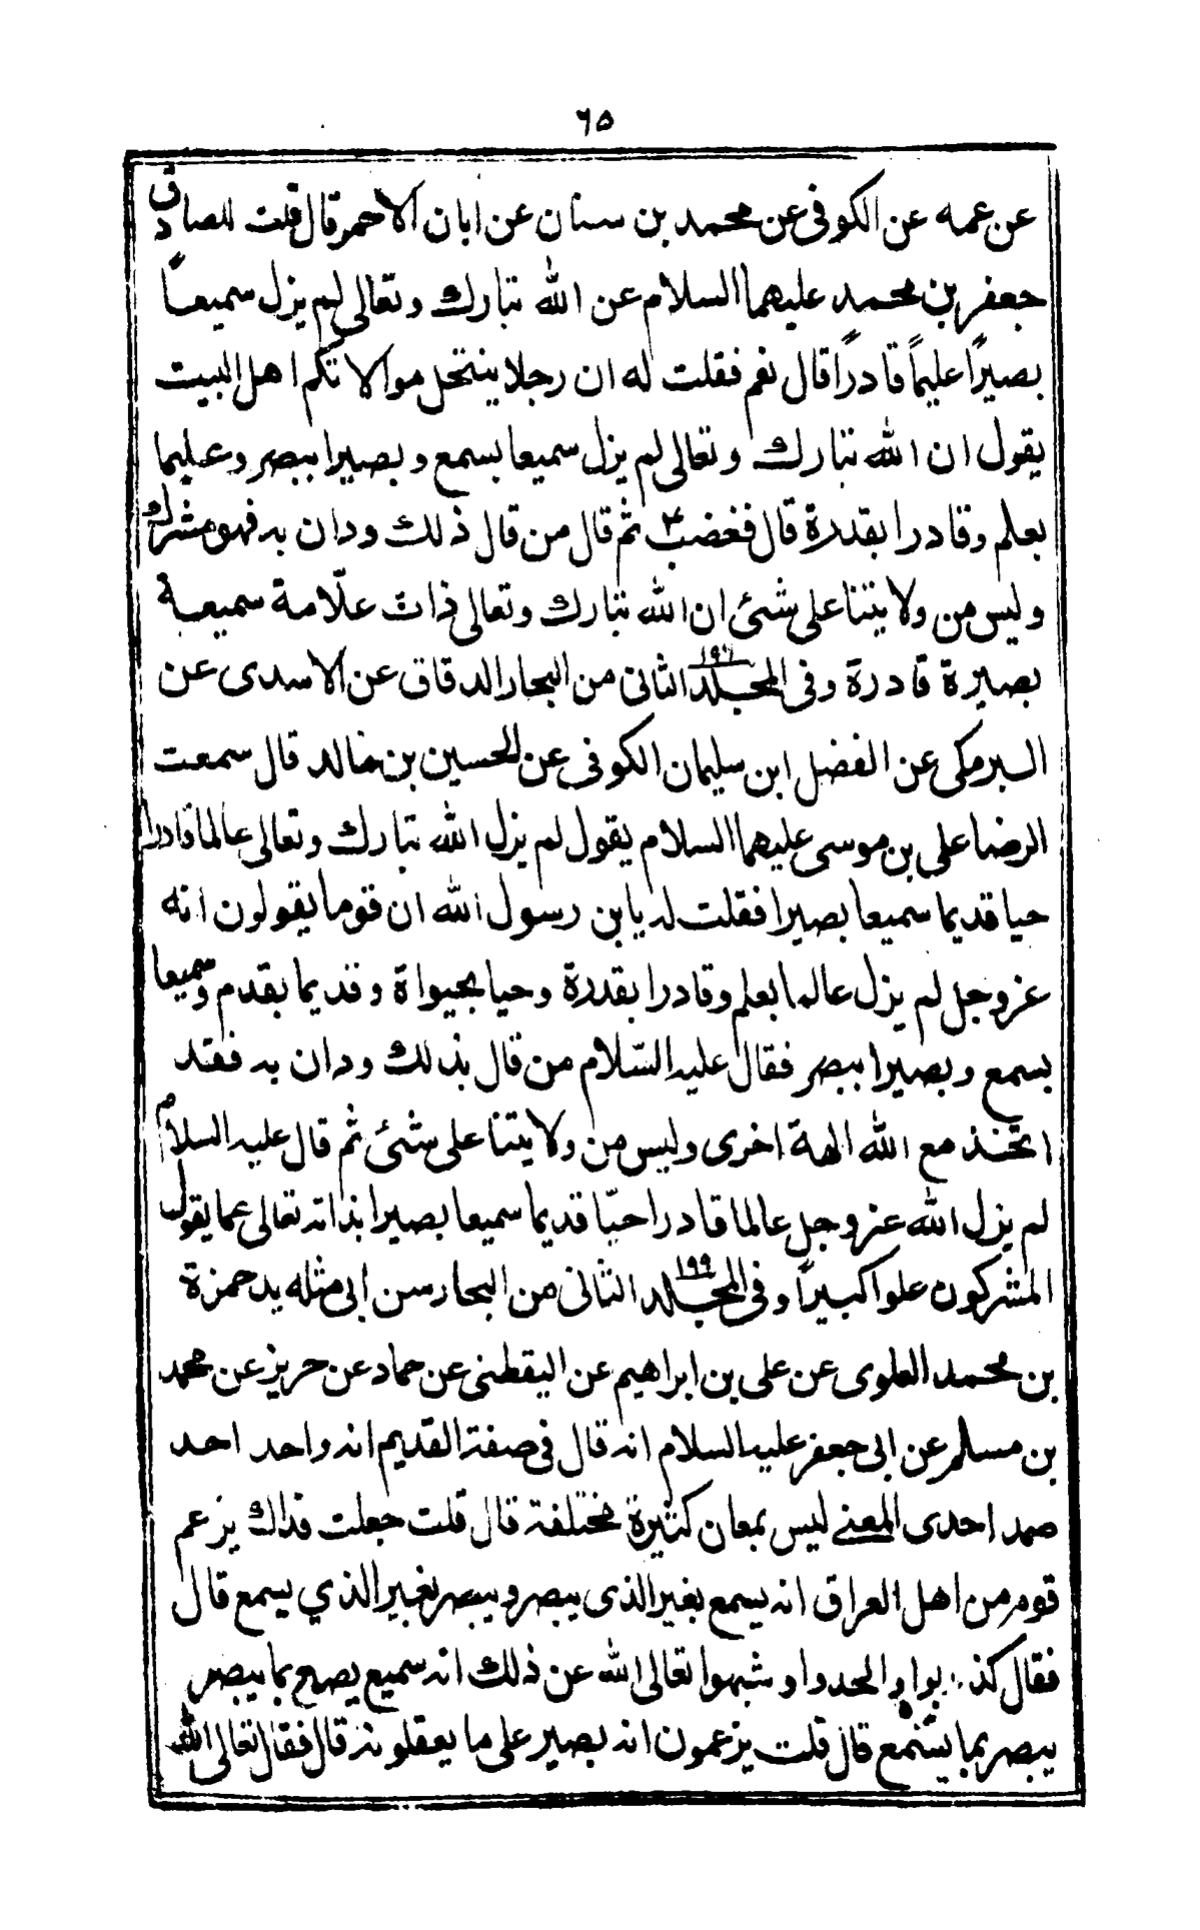 ٦٥
عن عمه عن الكوفى عن محمد بن سنان عن ابان الاحمر قال قلت للصادق
جعفر بن محمد عليهما السلام عن الله تبارك وتعالى لم يزل سميعاً
بصيرًا عليماً قادرًا قال نعم فقلت له ان رجلا ينتحل موالاتكم اهل البيت
يقول ان الله تبارك وتعالى لم يزل سميعا بسمع وبصيرا ببصر وعليما
بعلم وقادرا بقدرة قال فغضب ثم قال من قال ذلك ودان به فهو مشرك
وليس من ولايتنا على شئ ان الله تبارك وتعالى ذات علّامة سميعة
بصيرة قادرة وفى المجلد الثانى من البحار الدقاق عن الاسدى عن
البرمكى عن الفضل ابن سليمان الكوفى عن الحسين بن خالد قال سمعت
الرضا على بن موسى عليهما السلام يقول لم يزل الله تبارك وتعالى عالما قادرا
حيا قديما سميعا بصيرا فقلت له يا بن رسول الله ان قوما يقولون انه
عز وجل لم يزل عالما بعلم وقادرا بقدرة وحيا بحيواة وقديما بقدم وسميعا
بسمع وبصيرا ببصر فقال عليه السّلام من قال بذلك ودان به فقد
اتخذ مع الله الهة اخرى وليس من ولايتنا على شئ ثم قال عليه السلام
لم يزل الله عز وجل عالما قادرا حيّا قديما سميعا بصيرا بذاته تعالى عما يقول
المشركون علوا كبيرًا وفى المجلد ١٩٩ الثانى من البحار سن ابى مثله يد حمزة
بن محمد العلوى عن على بن ابراهيم عن اليقطنى عن حماد عن حريز عن محمد
بن مسلم عن ابى جعفر عليه السلام انه قال فى صفة القديم انه واحد احد
صمد احدى المعنى ليس بمعان كثيرة مختلفة قال قلت جعلت فداك يزعم
قوم من اهل العراق انه يسمع بغير الذى يبصر ويبصر بغير الذي يسمع قال
فقال كذبوا والحدوا وشبهوا تعالى الله عن ذلك انه سميع بصير يسمع بما يبصر
يبصر بما يسمع قال قلت يزعمون انه بصير على ما يعقلونه قال فقال تعالى الله